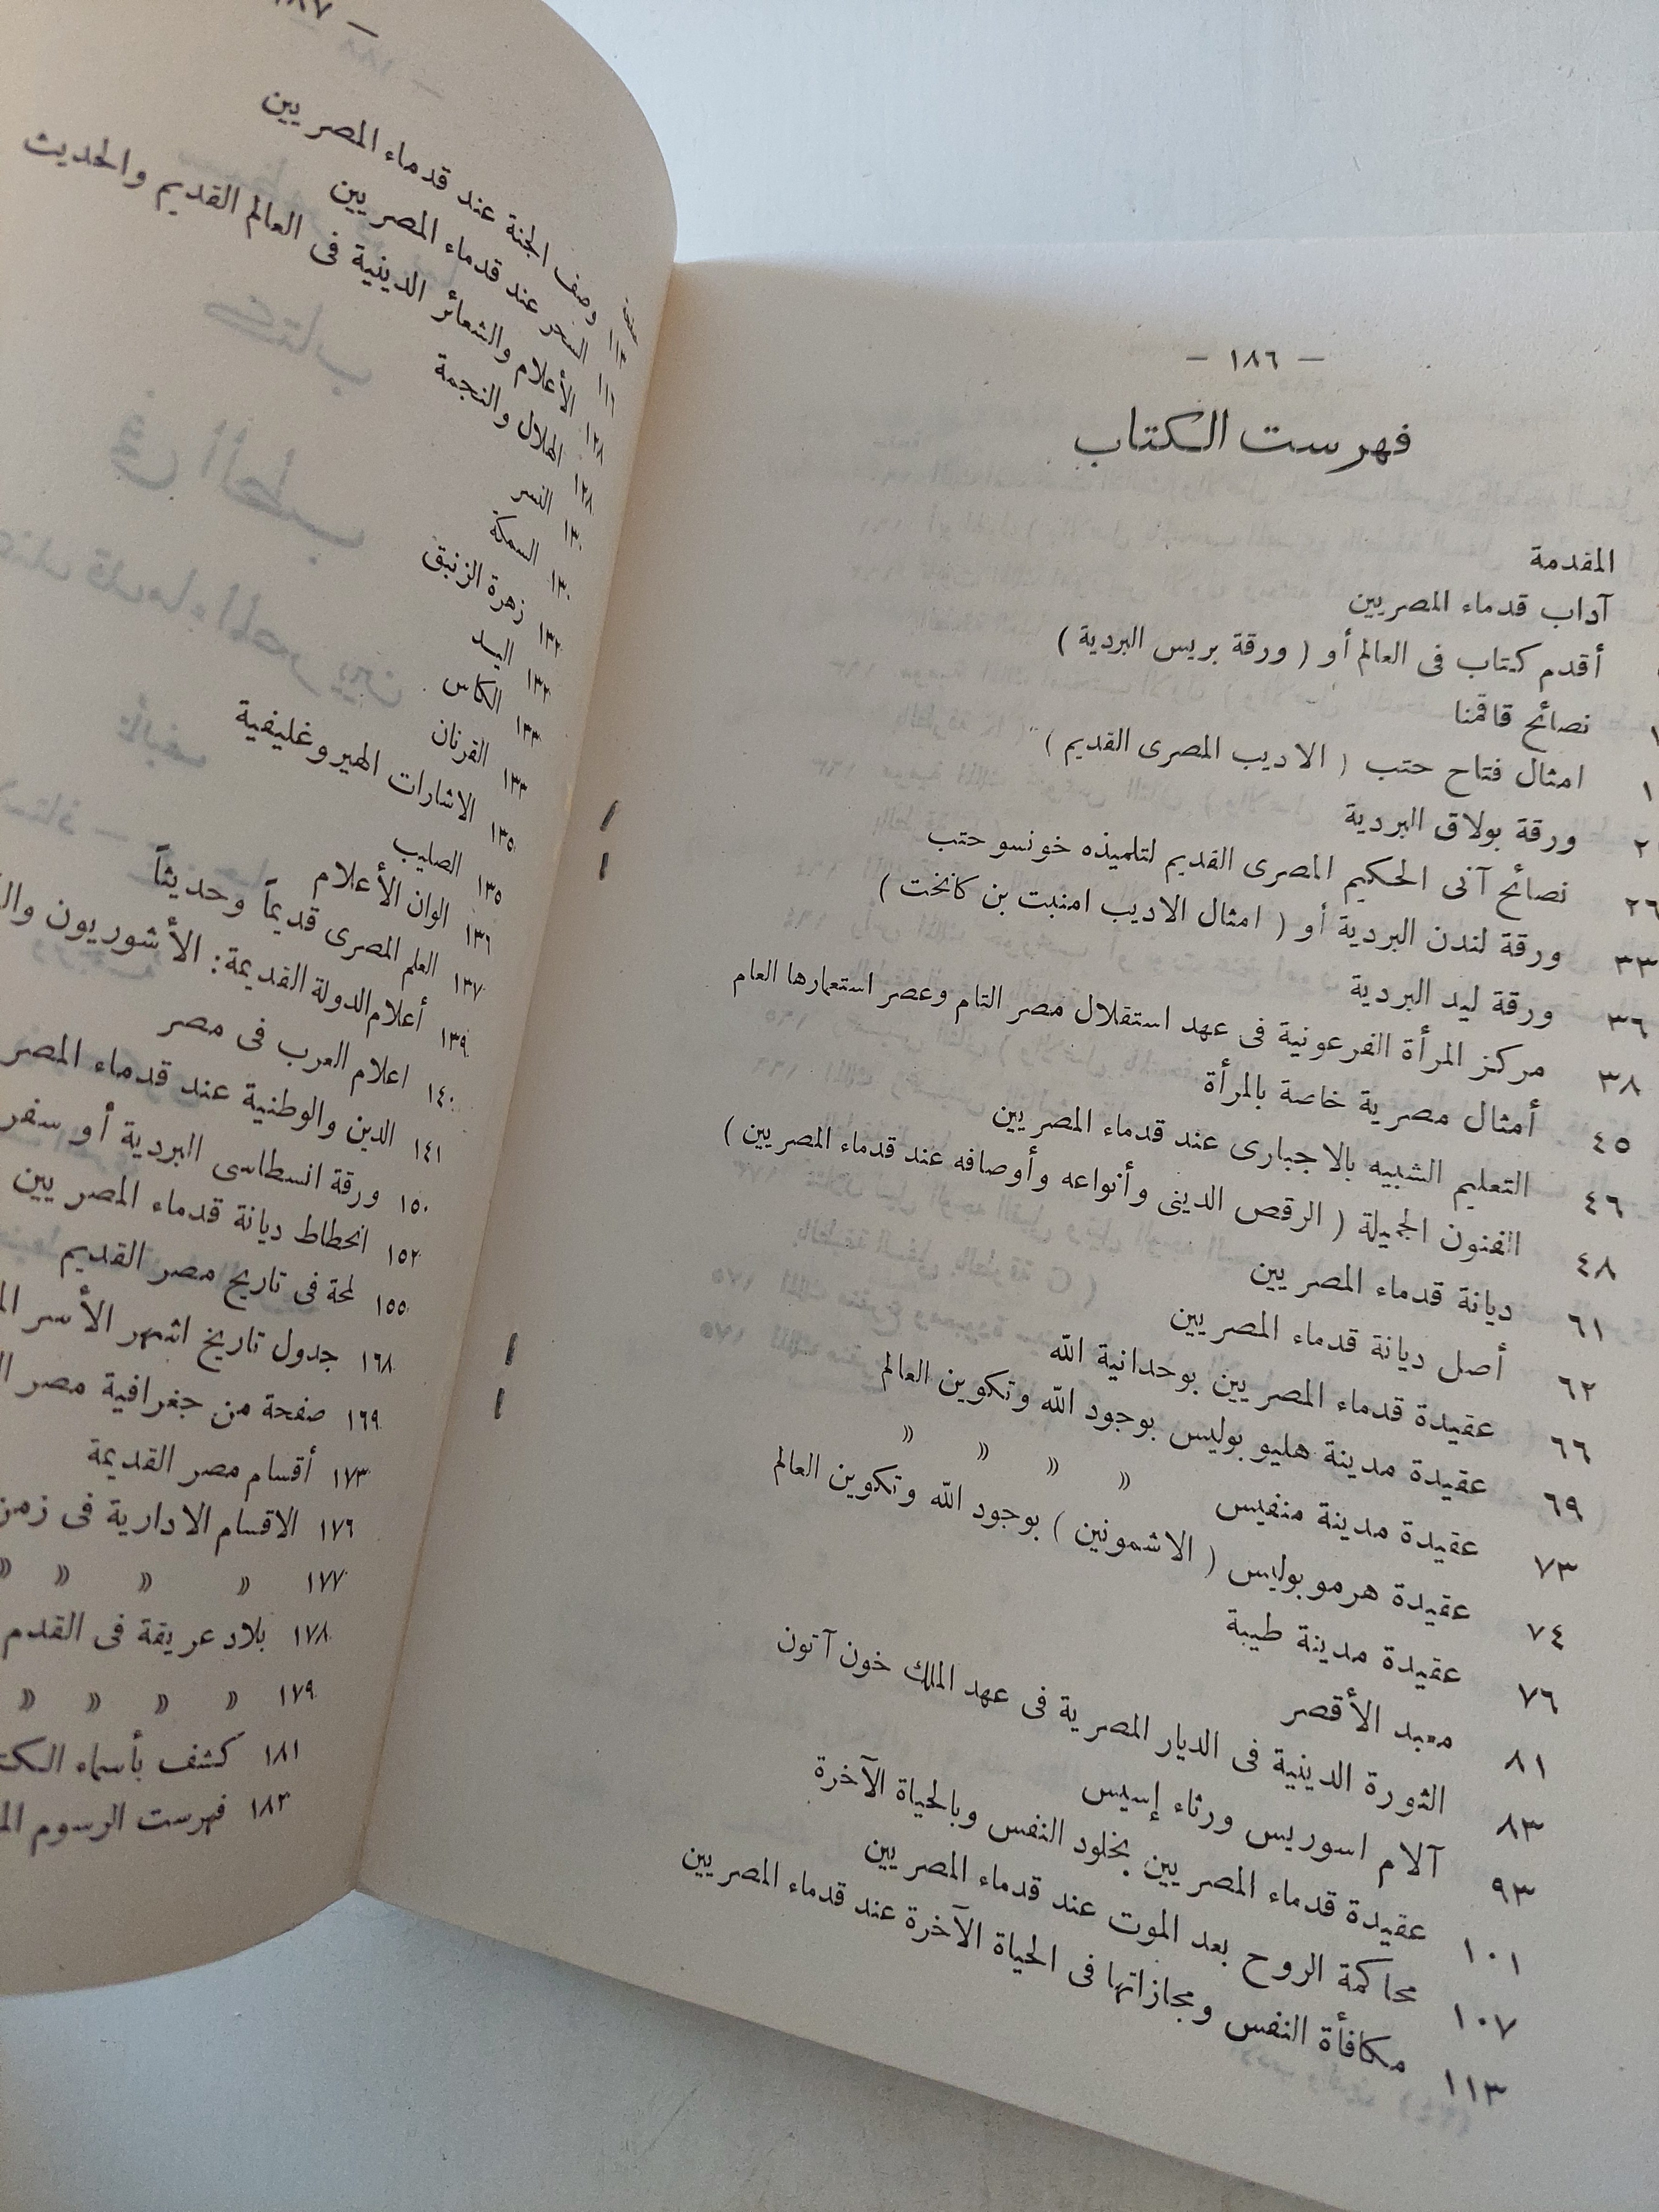 — ١٨٦ —
فهرست الكتاب
المقدمة
آداب قدماء المصريين
أقدم كتاب فى العالم أو ( ورقة بريس البردية )
نصائح قاقمنا
امثال فتاح حتب ( الاديب المصرى القديم )
ورقة بولاق البردية
٢٦ نصائح آنى الحكيم المصرى القديم لتلميذه خونسو حتب
٣٣ ورقة لندن البردية أو ( امثال الاديب امنبت بن كانخت )
٣٦ ورقة ليد البردية
٣٨ مركز المرأة الفرعونية فى عهد استقلال مصر التام وعصر استعمارها العام
٤٥ أمثال مصرية خاصة بالمرأة
٤٦ التعليم الشبيه بالاجبارى عند قدماء المصريين
٤٨ الفنون الجميلة ( الرقص الدينى وأنواعه وأوصافه عند قدماء المصريين )
٦١ ديانة قدماء المصريين
٦٢ أصل ديانة قدماء المصريين
٦٦ عقيدة قدماء المصريين بوحدانية الله
٦٩ عقيدة مدينة هليو بوليس بوجود الله وتكوين العالم
٧٣ عقيدة مدينة منفيس » » » »
٧٤ عقيدة هرمو بوليس ( الاشمونين ) بوجود الله وتكوين العالم
٧٦ عقيدة مدينة طيبة
٨١ معبد الأقصر
٨٣ الثورة الدينية فى الديار المصرية فى عهد الملك خون آتون
٩٣ آلام اسوريس ورثاء إسيس
١٠١ عقيدة قدماء المصريين بخلود النفس وبالحياة الآخرة
١٠٧ محاكمة الروح بعد الموت عند قدماء المصريين
١١٣ مكافأة النفس ومجازاتها فى الحياة الآخرة عند قدماء المصريين
— ١٨٧
صفحة
١١٣ وصف الجنة عند قدماء المصريين
١١٦ السحر عند قدماء المصريين
١٢٨ الأعلام والشعائر الدينية فى العالم القديم والحديث
١٢٨ الهلال والنجمة
١٣٠ النسر
١٣٠ السمكة
١٣٢ زهرة الزنبق
١٣٢ اليد
١٣٣ الكاس
١٣٣ القرنان
١٣٥ الاشارات الهيروغليفية
١٣٥ الصليب
١٣٦ الوان الأعلام
١٣٧ العلم المصرى قديماً وحديثاً
١٣٩ أعلام الدولة القديمة : الأشوريون
١٤٠ اعلام العرب فى مصر
١٤١ الدين والوطنية عند قدماء المصر
١٥٠ ورقة انسطاسى البردية أو سفر
١٥٢ انحطاط ديانة قدماء المصريين
١٥٥ لمحة فى تاريخ مصر القديم
١٦٨ جدول تاريخ اشهر الأسر
١٦٩ صفحة من جغرافية مصر
١٧٣ أقسام مصر القديمة
١٧٦ الاقسام الادارية فى زمن
١٧٧ » » » »
١٧٨ بلاد عريقة فى القدم
١٧٩ » » » »
١٨١ كشف بأسماء الكتـ
١٨٣ فهرست الرسوم